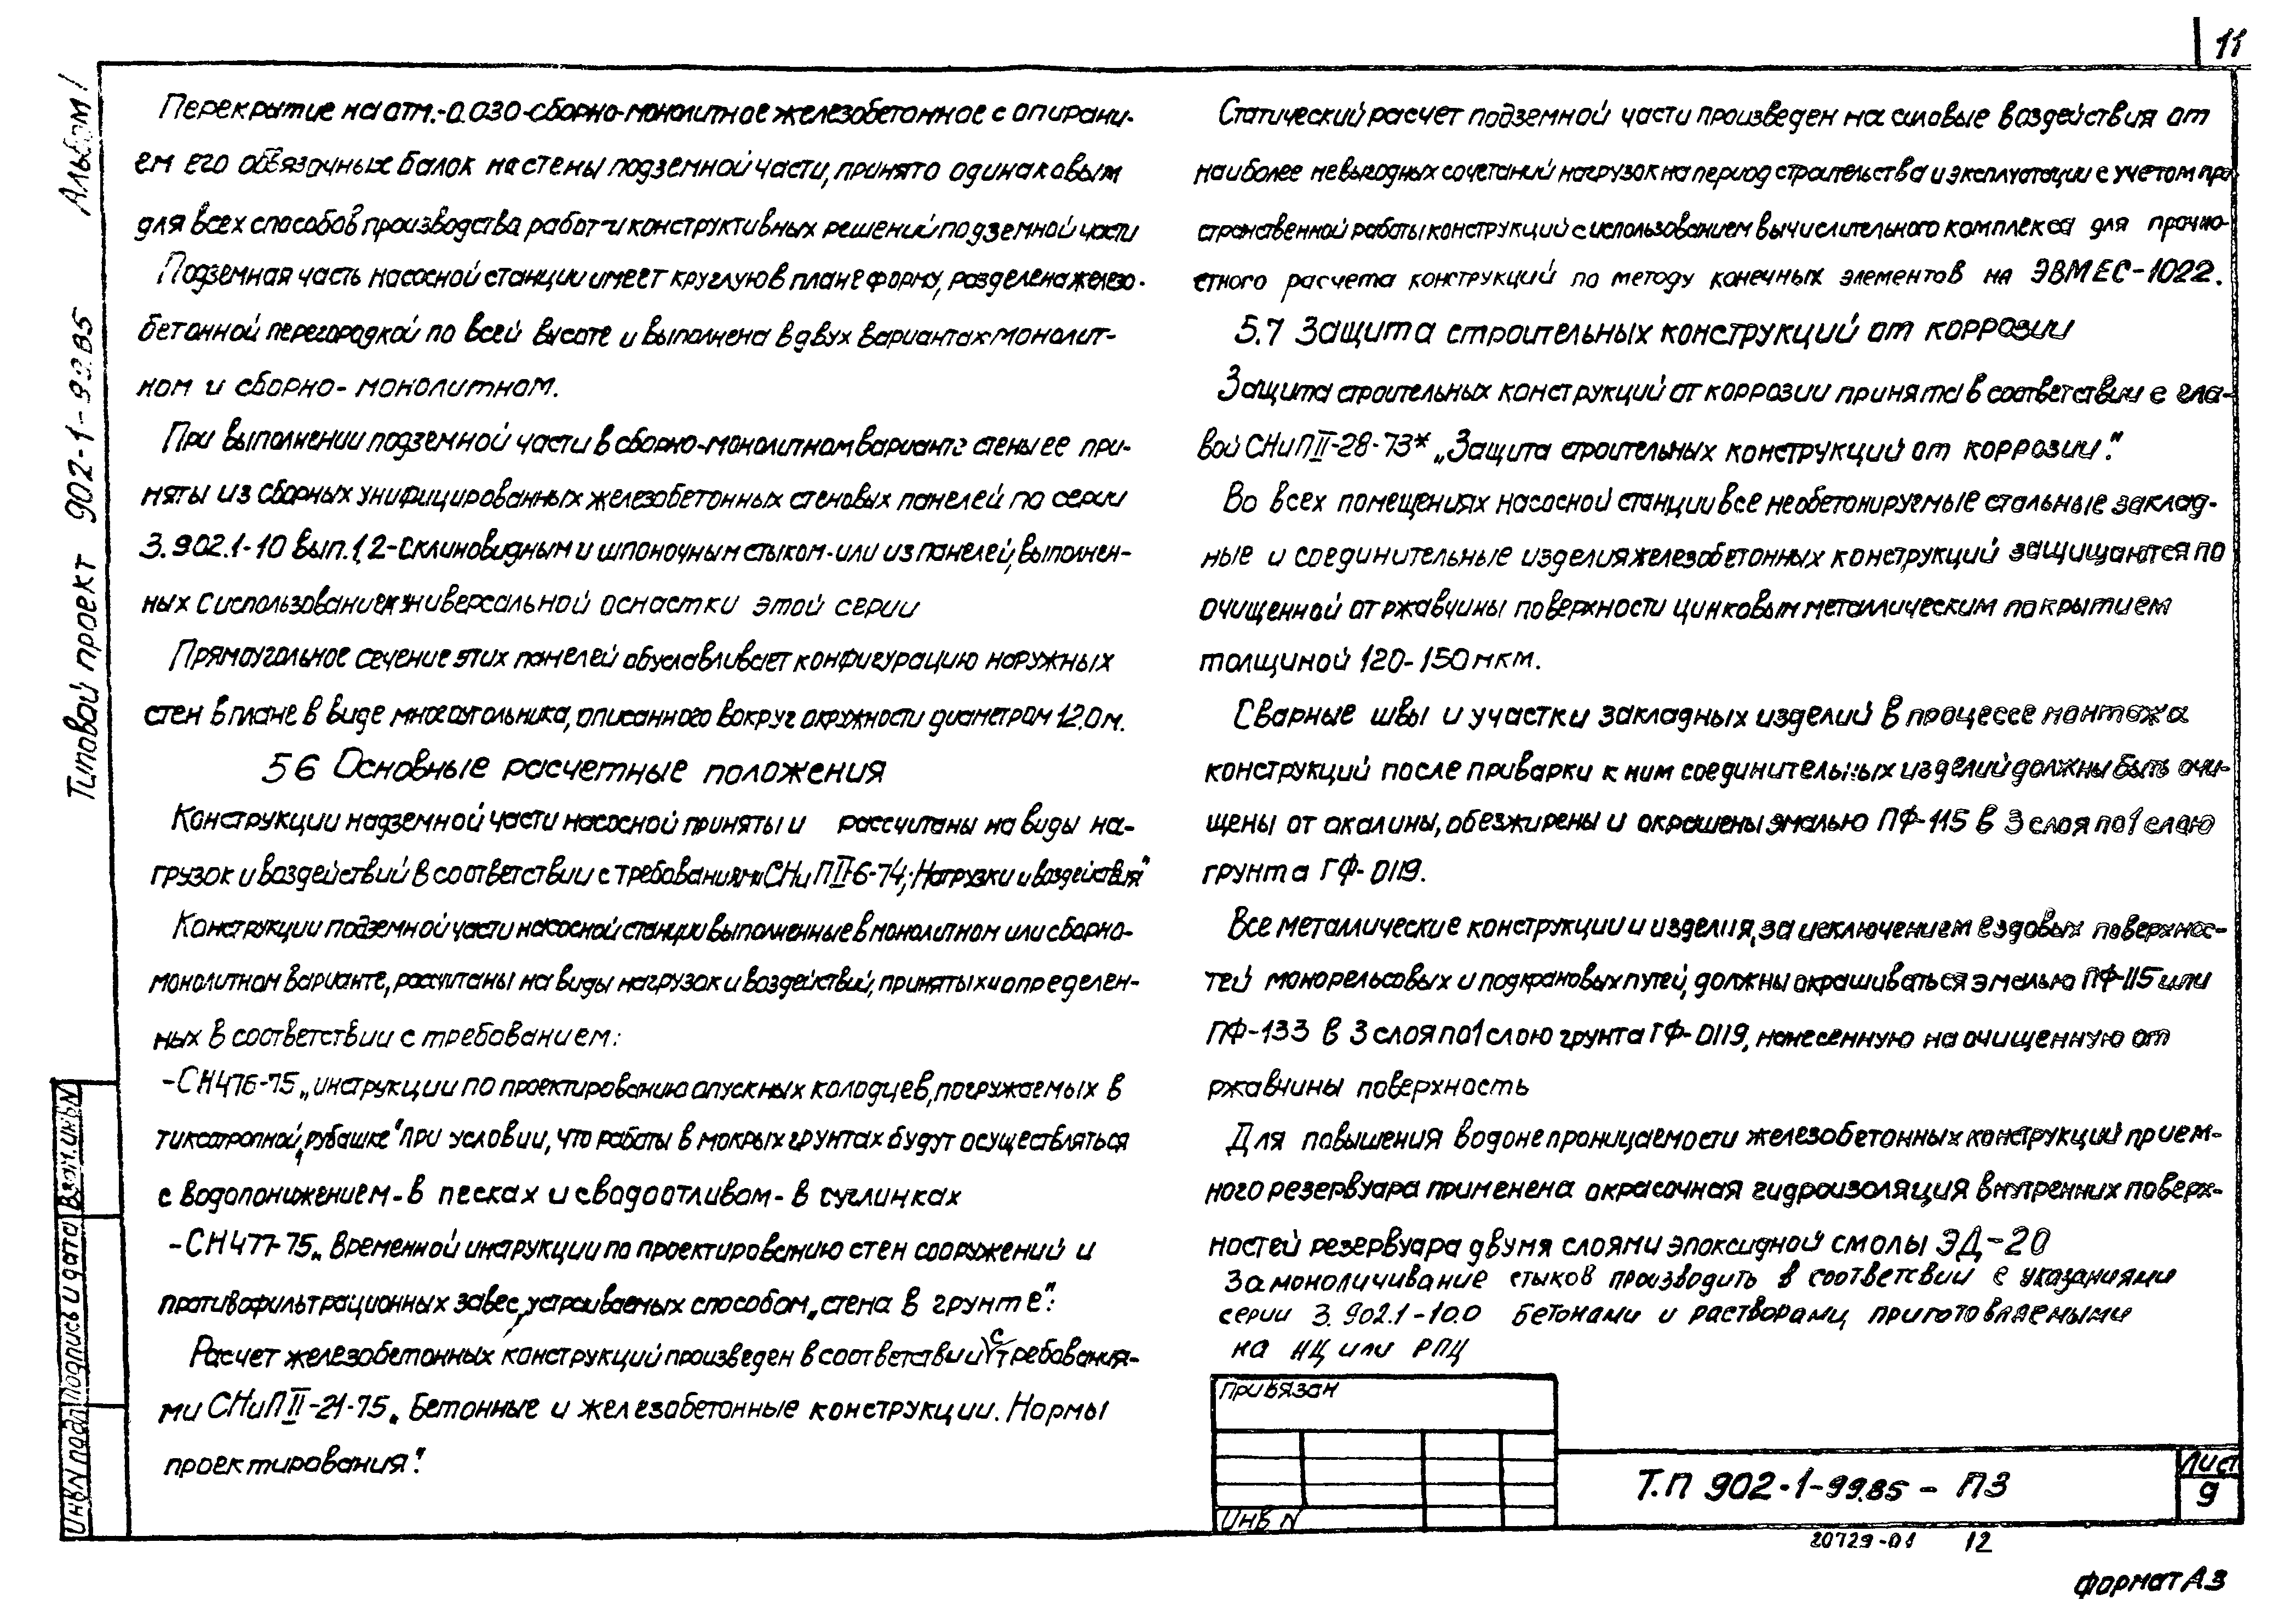 11
Альбом I
Типовой проект 902-1-99.85
Перекрытие на отм.-0.030-сборно-монолитное железобетонное с опирани-
ем его обвязочных балок на стены подземной части, принято одинаковым
для всех способов производства работ и конструктивных решений подземной части
Подземная часть насосной станции имеет круглую в плане форму, разделена железо-
бетонной перегородкой по всей высоте и выполнена в двух вариантах-монолит-
ном и сборно-монолитном.
При выполнении подземной части в сборно-монолитном варианте стены ее при-
няты из сборных унифицированных железобетонных стеновых панелей по серии
3.902.1-10 вып.1,2-с клиновидным и шпоночным стыком-или из панелей, выполнен-
ных с использованием универсальной оснастки этой серии
Прямоугольное сечение этих панелей обуславливает конфигурацию наружных
стен в плане в виде многоугольника, описанного вокруг окружности диаметром 12.0м.
5 6 Основные расчетные положения
Конструкции надземной части насосной приняты и рассчитаны на виды на-
грузок и воздействий в соответствии с требованиями СНиП II-6-74 „Нагрузки и воздействия"
Конструкции подземной части насосной станции выполненные в монолитном или сборно-
монолитном варианте, рассчитаны на виды нагрузок и воздействий, принятых и определен-
ных в соответствии с требованием:
-СН476-75 „инструкции по проектированию опускных колодцев, погружаемых в
тиксотропной „рубашке" при условии, что работы в мокрых грунтах будут осуществляться
с водопонижением-в песках и с водоотливом-в суглинках
-СН477-75 „Временной инструкции по проектированию стен сооружений и
противофильтрационных завес, устраиваемых способом „стена в грунте".
Расчет железобетонных конструкций произведен в соответствии с требования-
ми СНиП II-21-75 „Бетонные и железобетонные конструкции. Нормы
проектирования".
Статический расчет подземной части произведен на силовые воздействия от
наиболее невыгодных сочетаний нагрузок на период строительства и эксплуатации с учетом про
странственной работы конструкций с использованием вычислительного комплекса для прочно-
стного расчета конструкций по методу конечных элементов на ЭВМ ЕС-1022.
5.7 Защита строительных конструкций от коррозии
Защита строительных конструкций от коррозии принята в соответствии с гла-
вой СНиП II-28-73* „Защита строительных конструкций от коррозии".
Во всех помещениях насосной станции все необетонируемые стальные заклад-
ные и соединительные изделия железобетонных конструкций защищаются по
очищенной от ржавчины поверхности цинковым металлическим покрытием
толщиной 120-150мкм.
Сварные швы и участки закладных изделий в процессе монтажа
конструкций после приварки к ним соединительных изделий должны быть очи-
щены от окалины, обезжирены и окрашены эмалью ПФ-115 в 3 слоя по 1 слою
грунта ГФ-0119.
Все металлические конструкции и изделия, за исключением ездовых поверхнос-
тей монорельсовых и подкрановых путей, должны окрашиваться эмалью ПФ-115 или
ПФ-133 в 3 слоя по 1 слою грунта ГФ-0119, нанесенную на очищенную от
ржавчины поверхность
Для повышения водонепроницаемости железобетонных конструкций прием-
ного резервуара применена окрасочная гидроизоляция внутренних поверх-
ностей резервуара двумя слоями эпоксидной смолы ЭД-20
Замоноличивание стыков производить в соответсвии с указаниями
серии 3.902.1-10.0 бетонами и растворами, приготовляемыми
на НЦ или РПЦ
Привязан
Инв N
Т.П 902-1-99.85 - ПЗ
Лист
9
20729-01 12
Формат А3
Взам.инвN
Подпись и дата
Инв N подл